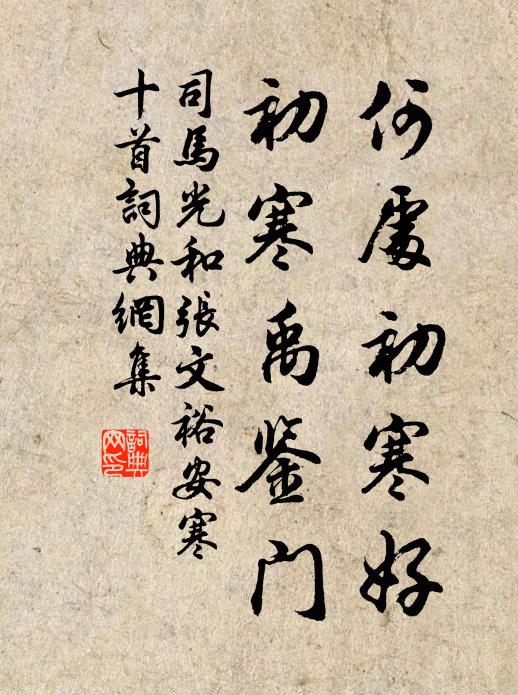 何處初寒好
初寒禹鉴門
司馬光和張文裕安寒
十首詞典網集
詞典
网印